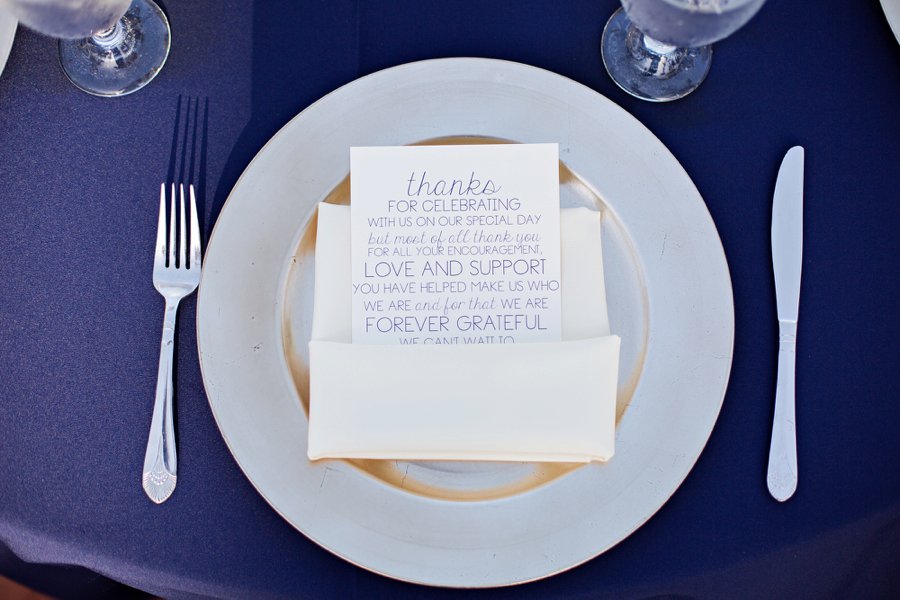 thanks
FOR CELEBRATING
WITH US ON OUR SPECIAL DAY
but most of all thank you
FOR ALL YOUR ENCOURAGEMENT,
LOVE AND SUPPORT
YOU HAVE HELPED MAKE US WHO
WE ARE and for that WE ARE
FOREVER GRATEFUL
WE CAN'T WAIT TO